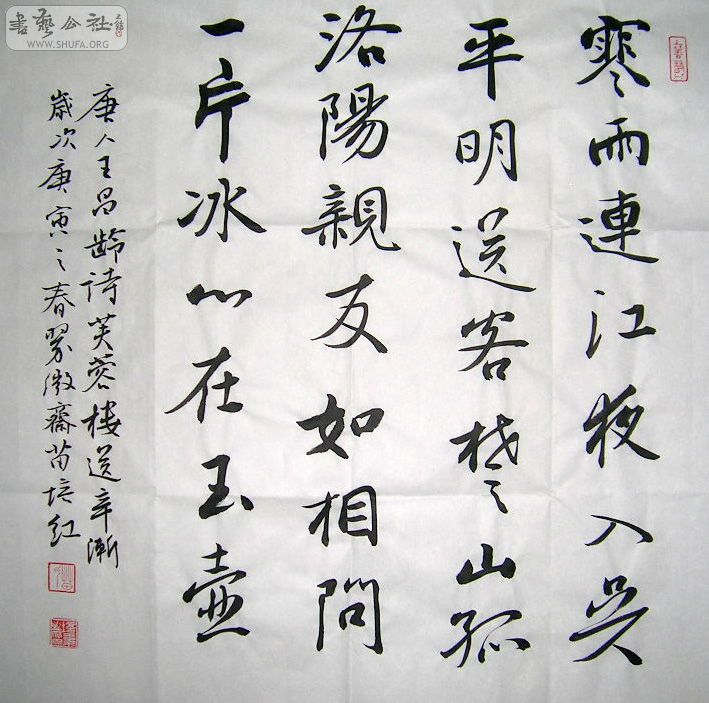 寒雨連江夜入吳
平明送客楚山孤
洛陽親友如相問
一片冰心在玉壺
唐人王昌齡詩芙蓉樓送辛漸
歲次庚寅之春翠微齋苗培紅
書藝公社
WWW.SHUFA.ORG